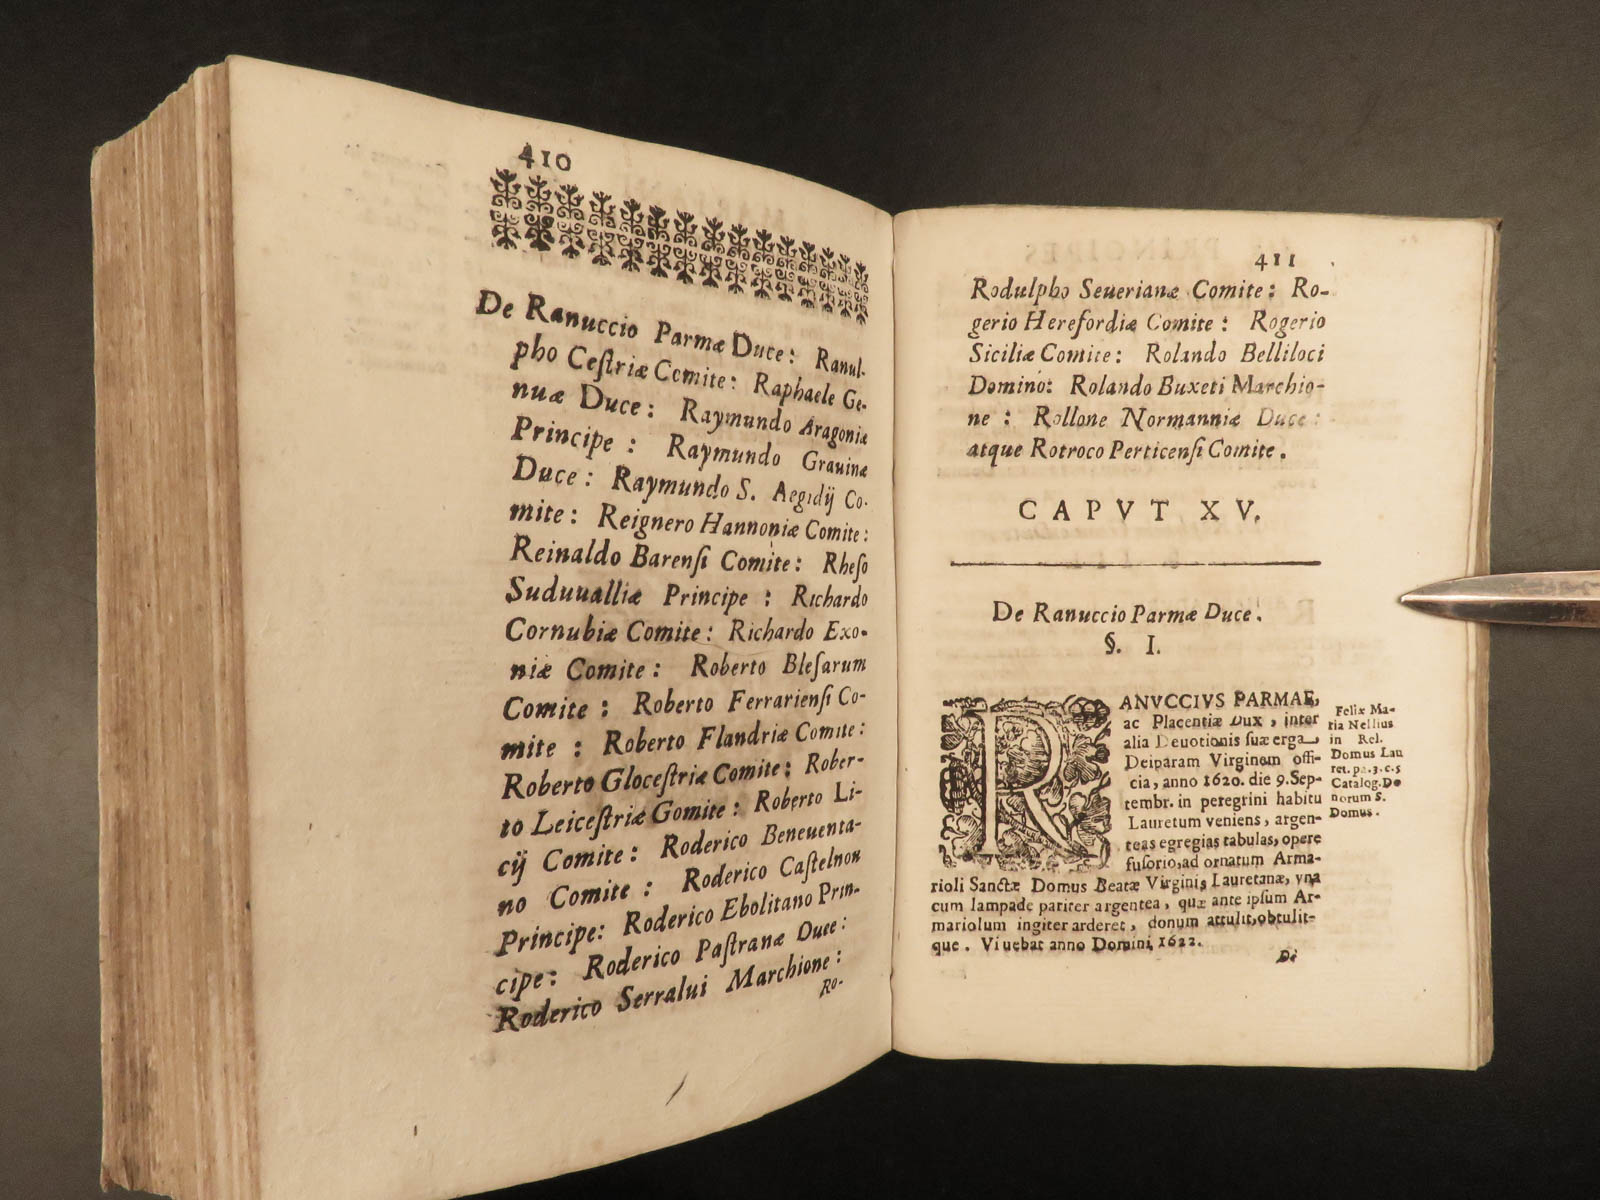 410
De Ranuccio Parmæ Duce: Ranul-
pho Ceſtriæ Comite: Raphaele Ge-
nuæ Duce: Raymundo Aragoniæ
Principe: Raymundo Grauinæ
Duce: Raymundo S. Aegidij Co-
mite: Reignero Hannoniæ Comite:
Reinaldo Barenſi Comite: Rheſo
Suduualliæ Principe: Richardo
Cornubiæ Comite: Richardo Exo-
niæ Comite: Roberto Bleſarum
Comite: Roberto Ferrarienſi Co-
mite: Roberto Flandriæ Comite:
Roberto Gloceſtriæ Comite: Rober-
to Leiceſtriæ Gomite: Roberto Li-
cij Comite: Roderico Beneuenta-
no Comite: Roderico Caſtelnou
Principe: Roderico Ebolitano Prin-
cipe: Roderico Paſtranæ Duce:
Roderico Serralui Marchione:
Ro-
411
Rodulpho Seuerianæ Comite: Ro-
gerio Herefordiæ Comite: Rogerio
Siciliæ Comite: Rolando Belliloci
Domino: Rolando Buxeti Marchio-
ne: Rollone Normanniæ Duce:
atque Rotroco Perticenſi Comite.
CAPVT XV.
De Ranuccio Parmæ Duce.
§. I.
RANVCCIVS PARMAE,
ac Placentiæ Dux, inter
alia Deuotionis ſuæ erga
Deiparam Virginem offi-
cia, anno 1620. die 9. Sep-
tembr. in peregrini habitu
Lauretum veniens, argen-
teas egregias tabulas, opere
fuſorio, ad ornatum Arma-
rioli Sanctæ Domus Beatæ Virginis Lauretanæ, vna
cum lampade pariter argentea, quæ ante ipſum Ar-
mariolum ingiter arderet, donum attulit, obtulit-
que. Viuebat anno Domini 1622.
Felix Ma-
ria Nellius
in Rel.
Domus Lau
ret. pa. 3. c. 5
Catalog. Do
norum S.
Domus.
De